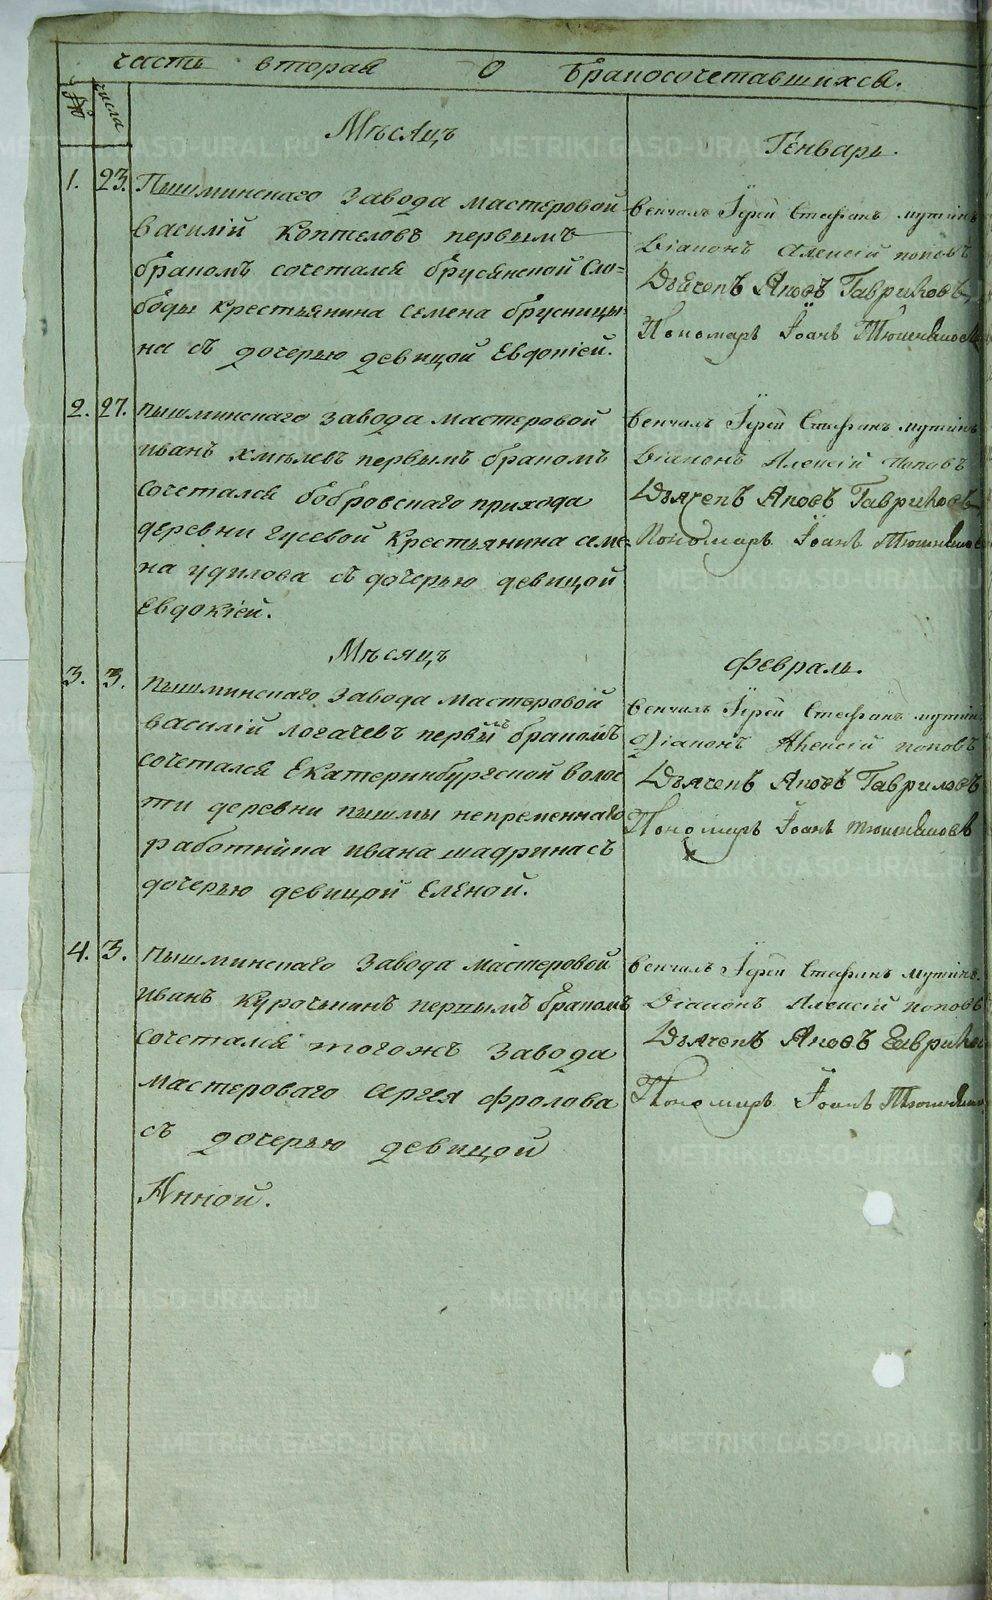 часть вторая О бракосочетавшихся.
№ числа
Мѣсяцъ Генварь.
1. 23. Пышминскаго завода мастеровой
Василій Коптеловъ первымъ
бракомъ сочетался брусянской Сло=
боды крестьянина Семена брусницы
на съ дочерью девицой Евдокіей.
Венчалъ Іерей Стефанъ мутинъ
Діаконъ Алексій поповъ
Дьячекъ Яковъ Гавриловъ
Пономарь Іоанъ
2. 27. пышминскаго завода мастеровой
иванъ хмѣлевъ первымъ бракомъ
сочетался бобровскаго прихода
деревни гусевой крестьянина семе
на удилова съ дочерью девицой
Евдокіей.
Венчалъ Іерей Стефанъ мутинъ
Діаконъ Алексій поповъ
Дьячекъ Яковъ Гавриловъ
Пономарь Іоанъ
Мѣсяцъ Февраль.
3. 3. пышминскаго завода мастеровой
василій логачевъ первымъ бракомъ
сочетался Екатеринбургской волос
ти деревни пышмы непременнаго
работника ивана шадрина съ
дочерью девицой Еленой.
Венчалъ Іерей Стефанъ мутин
Діаконъ Алексій поповъ
Дьячекъ Яковъ Гавриловъ
Пономарь Іоанъ
4. 3. пышминскаго завода мастеровой
иванъ Курочкинъ первымъ бракомъ
сочетался тогожъ завода
мастероваго Сергея фролова
съ дочерью девицой
Анной.
Венчалъ Іерей Стефанъ мутинъ.
Діаконъ Алексій поповъ
Дьячекъ Яковъ Гаврило
Пономарь Іоанъ
METRIKI.GASO-URAL.RU